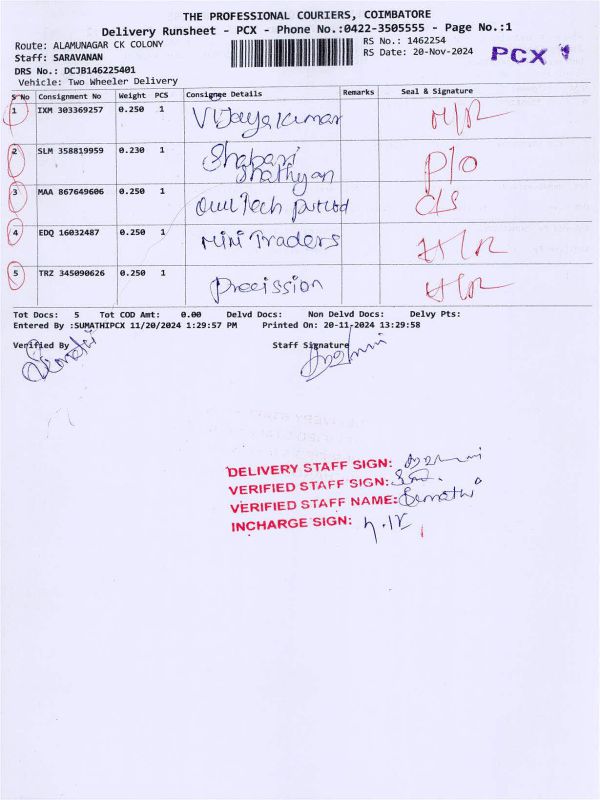 THE PROFESSIONAL COURIERS, COIMBATORE
Delivery Runsheet - PCX - Phone No.:0422-3505555 - Page No.:1
Route: ALAMUNAGAR CK COLONY
RS No.: 1462254
Staff: SARAVANAN
RS Date: 20-Nov-2024
PCX
DRS No.: DCJB146225401
Vehicle: Two Wheeler Delivery
S No Consignment No Weight PCS Consignee Details Remarks Seal & Signature
1 IXM 303369257 0.250 1 Vijayakumar H/R
2 SLM 358819959 0.230 1 P/O
3 MAA 867649606 0.250 1 Tech C/S
4 EDQ 16032487 0.250 1 Mini Traders H/R
5 TRZ 345090626 0.250 1 Precission H/R
Tot Docs: 5 Tot COD Amt: 0.00 Delvd Docs: Non Delvd Docs: Delvy Pts:
Entered By :SUMATHIPCX 11/20/2024 1:29:57 PM Printed On: 20-11-2024 13:29:58
Verified By Staff Signature
DELIVERY STAFF SIGN:
VERIFIED STAFF SIGN:
VERIFIED STAFF NAME:
INCHARGE SIGN: